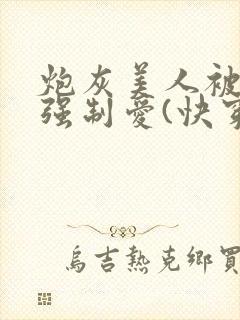 炮灰美人被
强制爱(快穿
烏吉熱克鄉買